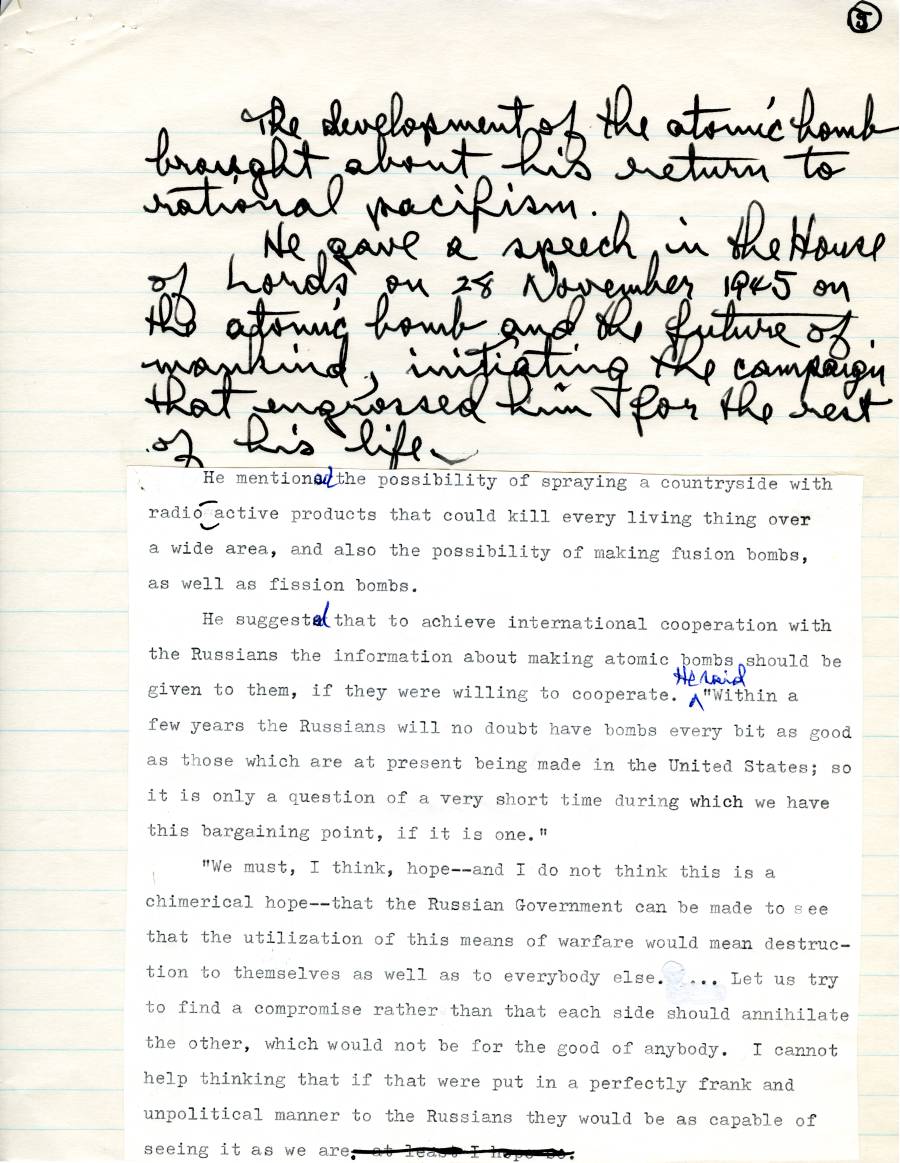 5
The development of the atomic bomb
brought about his return to
rational pacifism.
He gave a speech in the House
of Lords on 28 November 1945 on
the atomic bomb and the future of
mankind, initiating the campaign
that engrossed him for the rest
of his life
He mentioned the possibility of spraying a countryside with
radio active products that could kill every living thing over
a wide area, and also the possibility of making fusion bombs,
as well as fission bombs.
He suggested that to achieve international cooperation with
the Russians the information about making atomic bombs should be
given to them, if they were willing to cooperate. He said "Within a
few years the Russians will no doubt have bombs every bit as good
as those which are at present being made in the United States; so
it is only a question of a very short time during which we have
this bargaining point, if it is one."
"We must, I think, hope--and I do not think this is a
chimerical hope--that the Russian Government can be made to see
that the utilization of this means of warfare would mean destruc-
tion to themselves as well as to everybody else. ... Let us try
to find a compromise rather than that each side should annihilate
the other, which would not be for the good of anybody. I cannot
help thinking that if that were put in a perfectly frank and
unpolitical manner to the Russians they would be as capable of
seeing it as we are, at least I hope so.